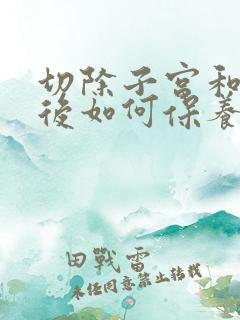 切除子宫和
後如何保養
田戰雷
未经同意禁止转载